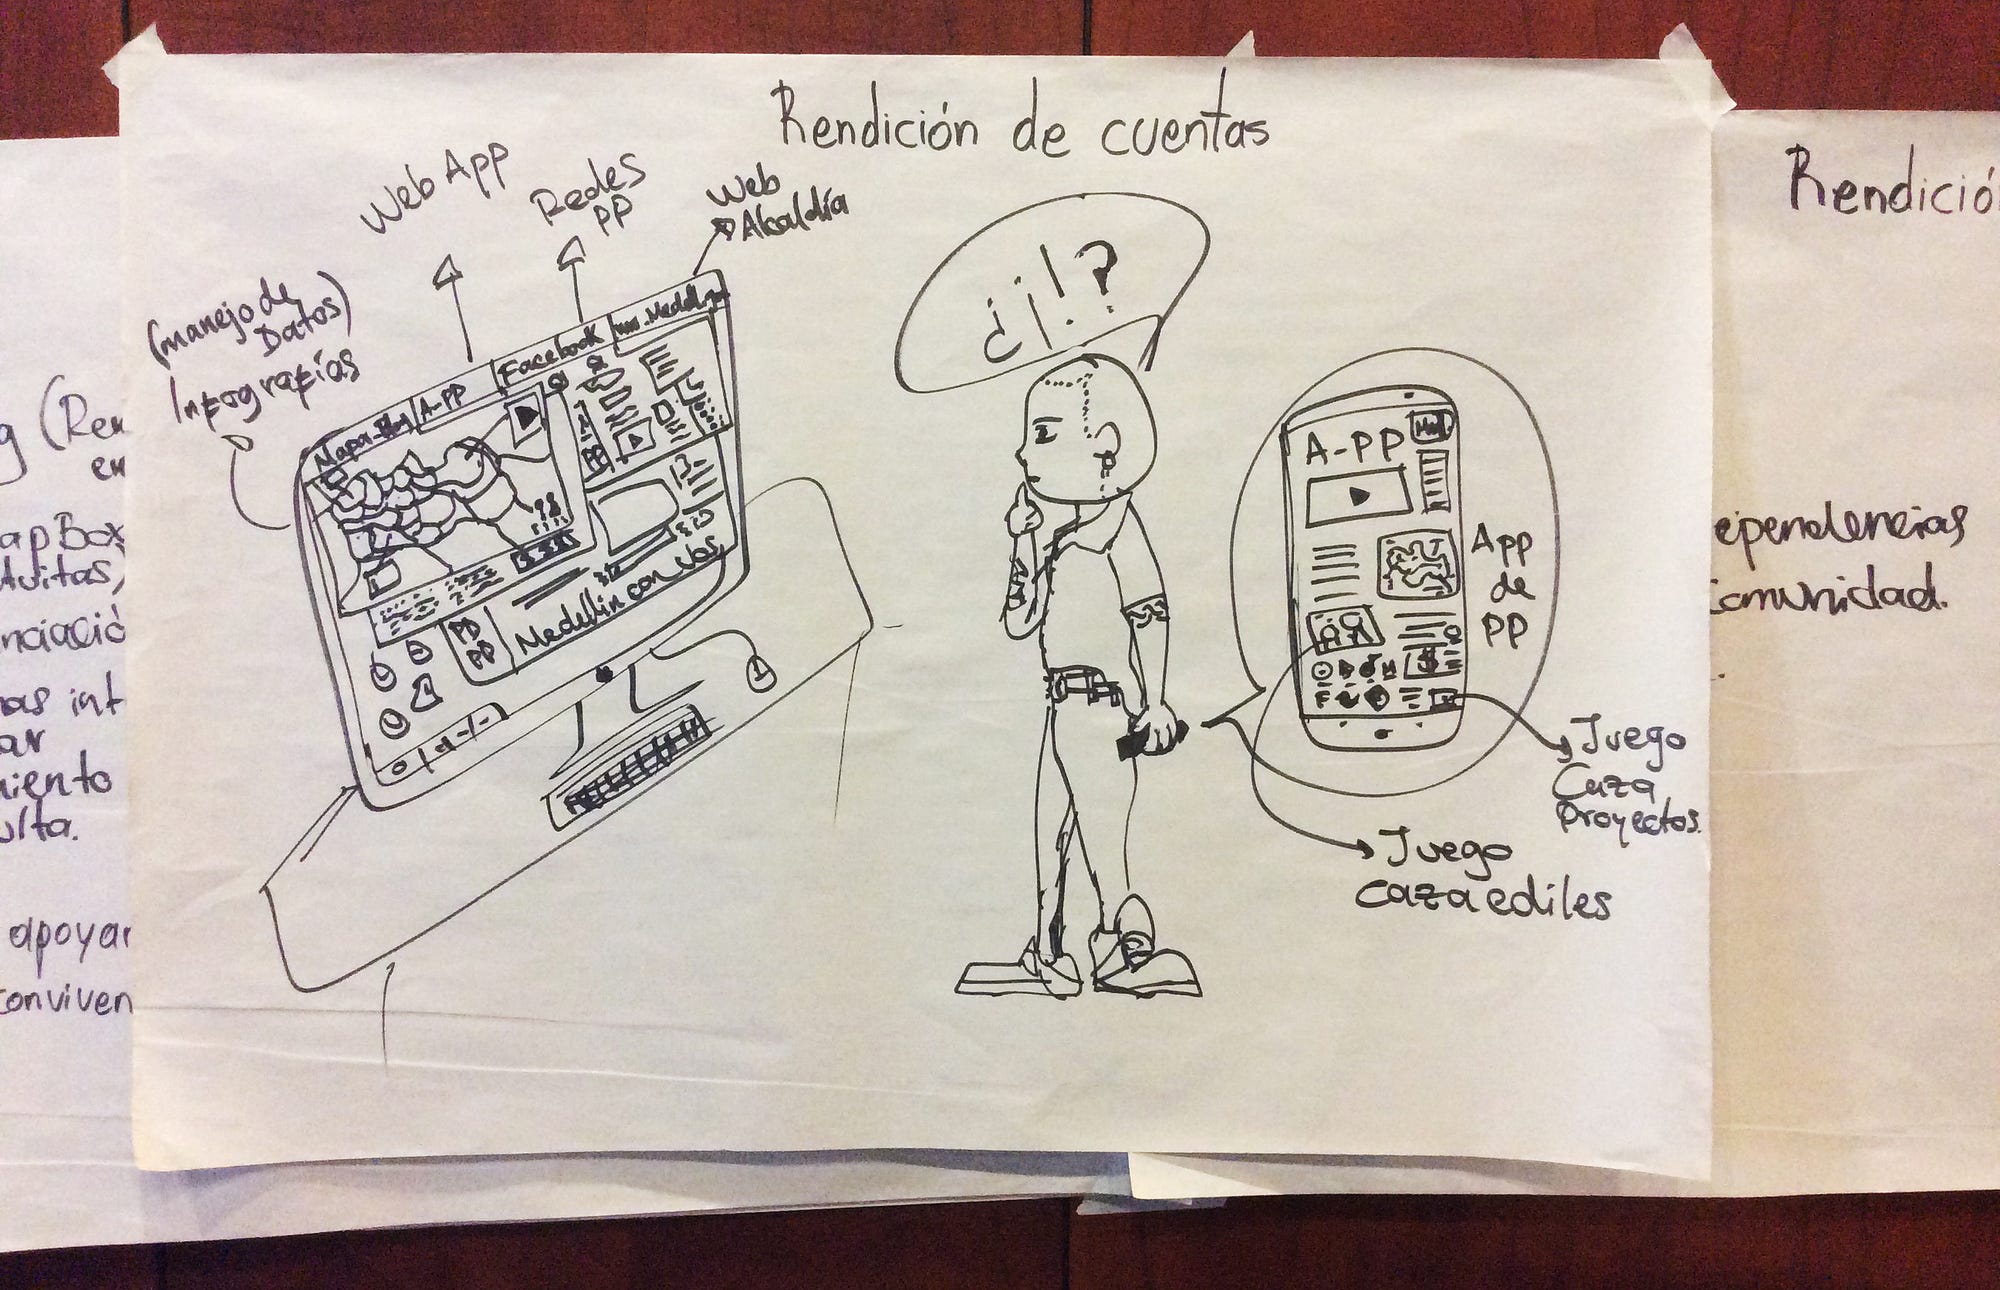 Rendición de cuentas
Web App
Redes
PP
Web
Alcaldía
(manejo de
Datos)
Infografías
A-PP
Facebook
PP
Medellín con vos
¿¡!?
A-PP
App
de
PP
Juego
Caza
Proyectos.
Juego
caza ediles
(Ren
en
apBox,
nciació
as int
ar
miento
ulta.
apoyar
conviven
Rendició
ependencias
comunidad.